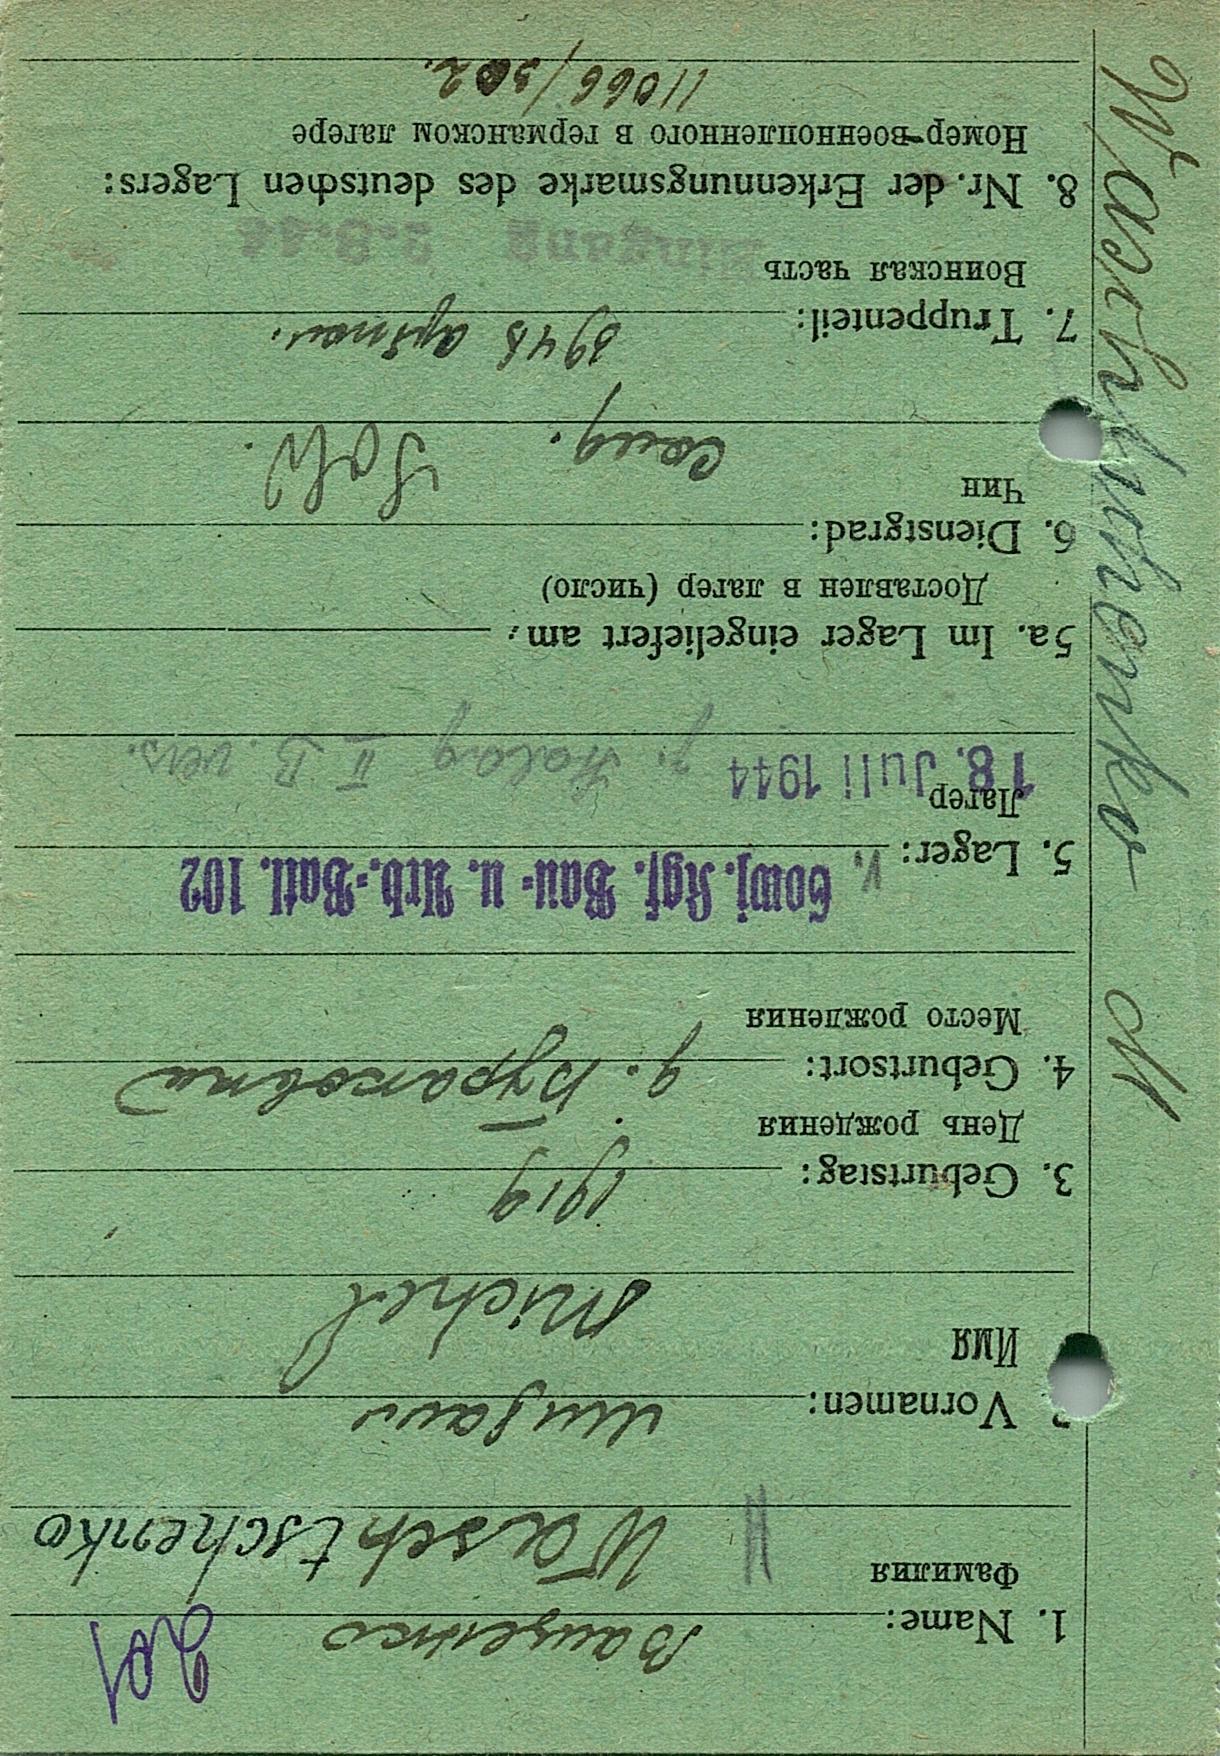 201
1. Name: Ващенко
Фамилия
Waschtschenko
2. Vornamen: Михаил
Имя
Michel
3. Geburtstag: 1919
День рождения
4. Geburtsort: д.
Место рождения
5. Lager: v. Sowj. Kgf. Bau- u. Arb.-Batl. 102
Лагер
18. Juli 1944 z. Stalag II B. vers.
5a. Im Lager eingeliefert am:
Доставлен в лагер (число)
6. Dienstgrad:
Чин
солд. Sold.
7. Truppenteil:
Воинская часть
Eingang 2.8.44
8. Nr. der Erkennungsmarke des deutschen Lagers:
Номер военнопленного в германском лагере
11066/302.
Waschtschenko M